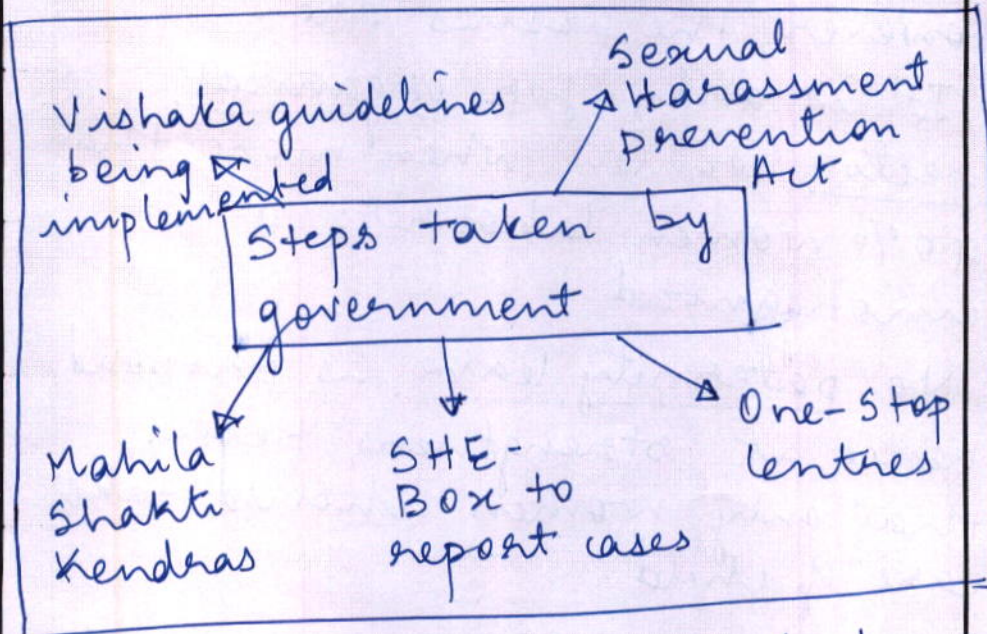 Vishaka guidelines
being
implemented
Sexual
Harassment
prevention
Act
Steps taken by
government
Mahila
Shakti
Kendras
SHE-
Box to
report cases
One-Stop
Centres